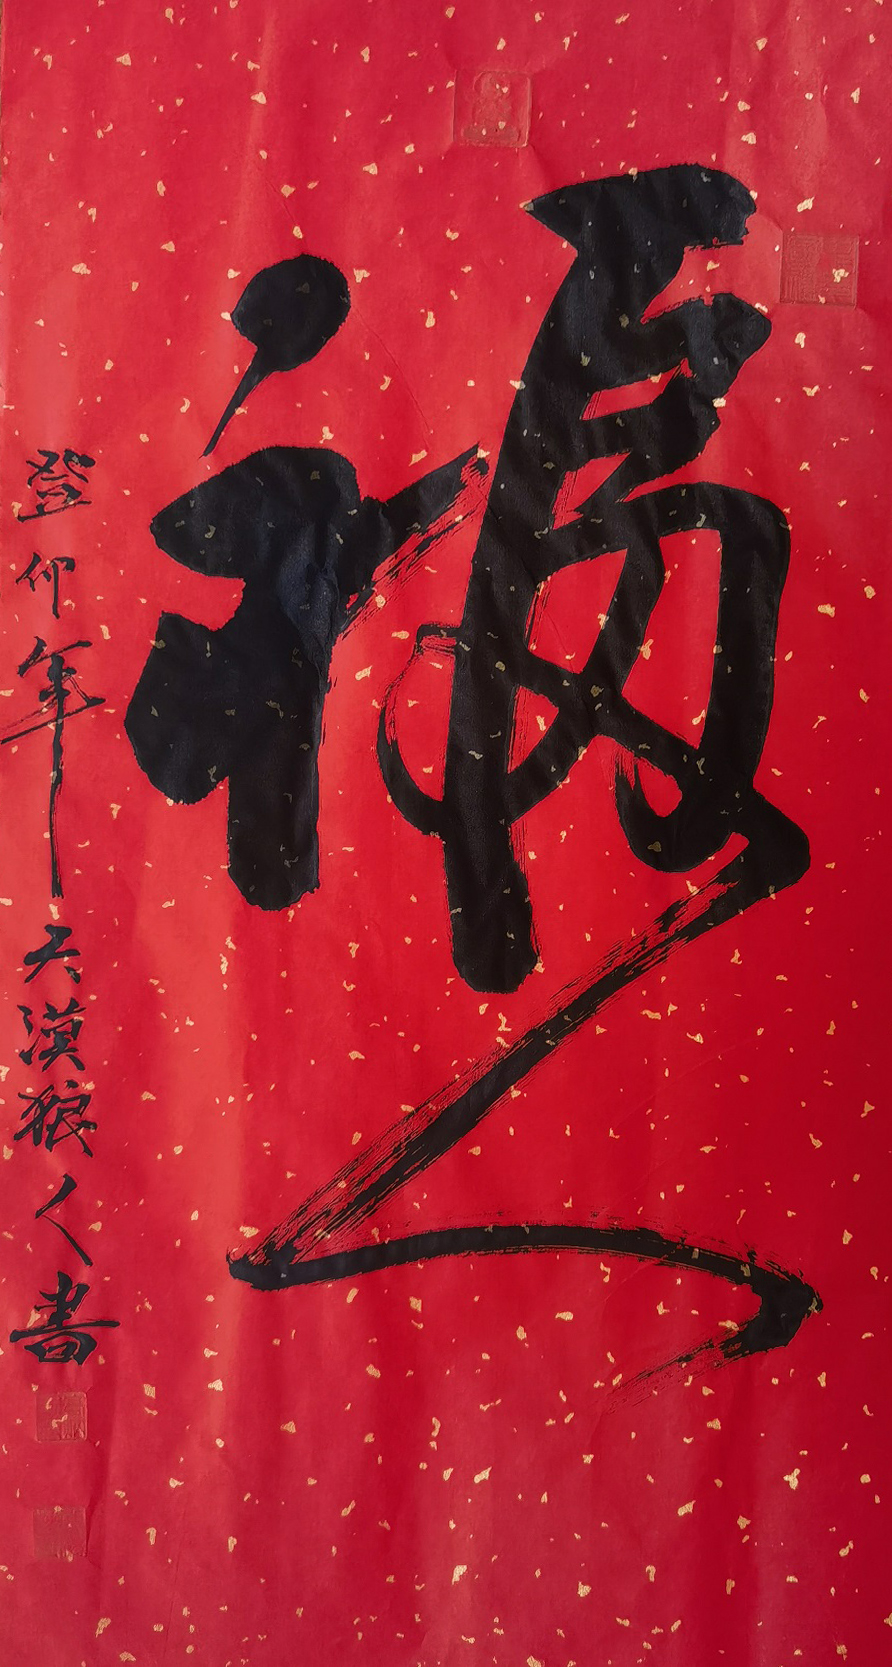 福
癸卯年天漠狼人書